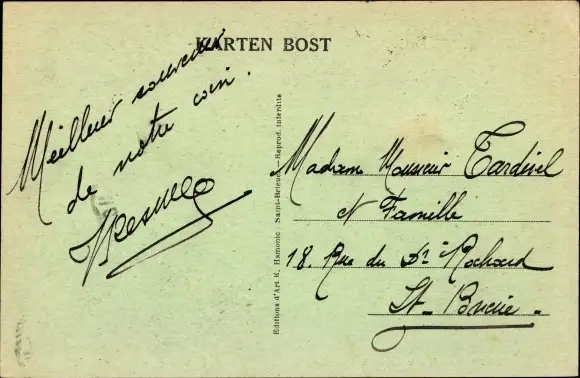 KARTEN BOST
Meilleur souvenir
de notre coin.
Editions d'Art E. Hamonic Saint-Brieuc — Reprod. interdite
Madame Monsieur Tardivel
et Famille
18. Rue du Dr Rochard
St-Brieuc